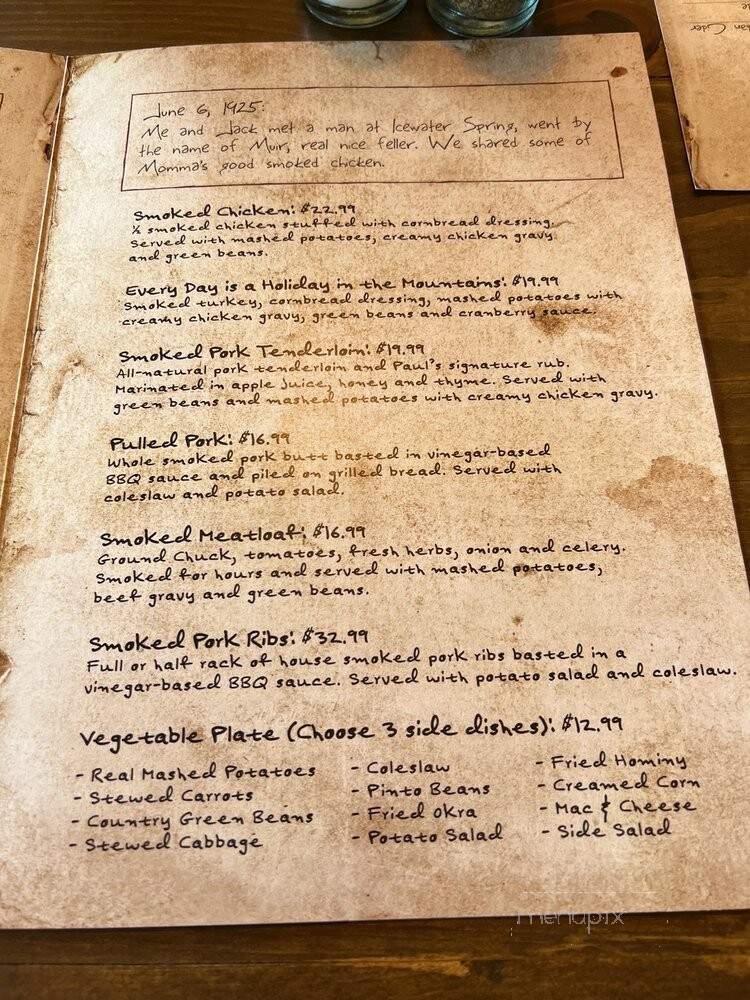 June 6, 1925:
Me and Jack met a man at Icewater Spring, went by
the name of Muir, real nice feller. We shared some of
Momma's good smoked chicken.
Smoked Chicken: $22.99
½ smoked chicken stuffed with cornbread dressing.
Served with mashed potatoes, creamy chicken gravy
and green beans.
Every Day is a Holiday in the Mountains: $19.99
Smoked turkey, cornbread dressing, mashed potatoes with
creamy chicken gravy, green beans and cranberry sauce.
Smoked Pork Tenderloin: $19.99
All-natural pork tenderloin and Paul's signature rub.
Marinated in apple juice, honey and thyme. Served with
green beans and mashed potatoes with creamy chicken gravy.
Pulled Pork: $16.99
Whole smoked pork butt basted in vinegar-based
BBQ sauce and piled on grilled bread. Served with
coleslaw and potato salad.
Smoked Meatloaf: $16.99
Ground Chuck, tomatoes, fresh herbs, onion and celery.
Smoked for hours and served with mashed potatoes,
beef gravy and green beans.
Smoked Pork Ribs: $32.99
Full or half rack of house smoked pork ribs basted in a
vinegar-based BBQ sauce. Served with potato salad and coleslaw.
Vegetable Plate (Choose 3 side dishes): $12.99
- Real Mashed Potatoes
- Stewed Carrots
- Country Green Beans
- Stewed Cabbage
- Coleslaw
- Pinto Beans
- Fried Okra
- Potato Salad
- Fried Hominy
- Creamed Corn
- Mac & Cheese
- Side Salad
menupix